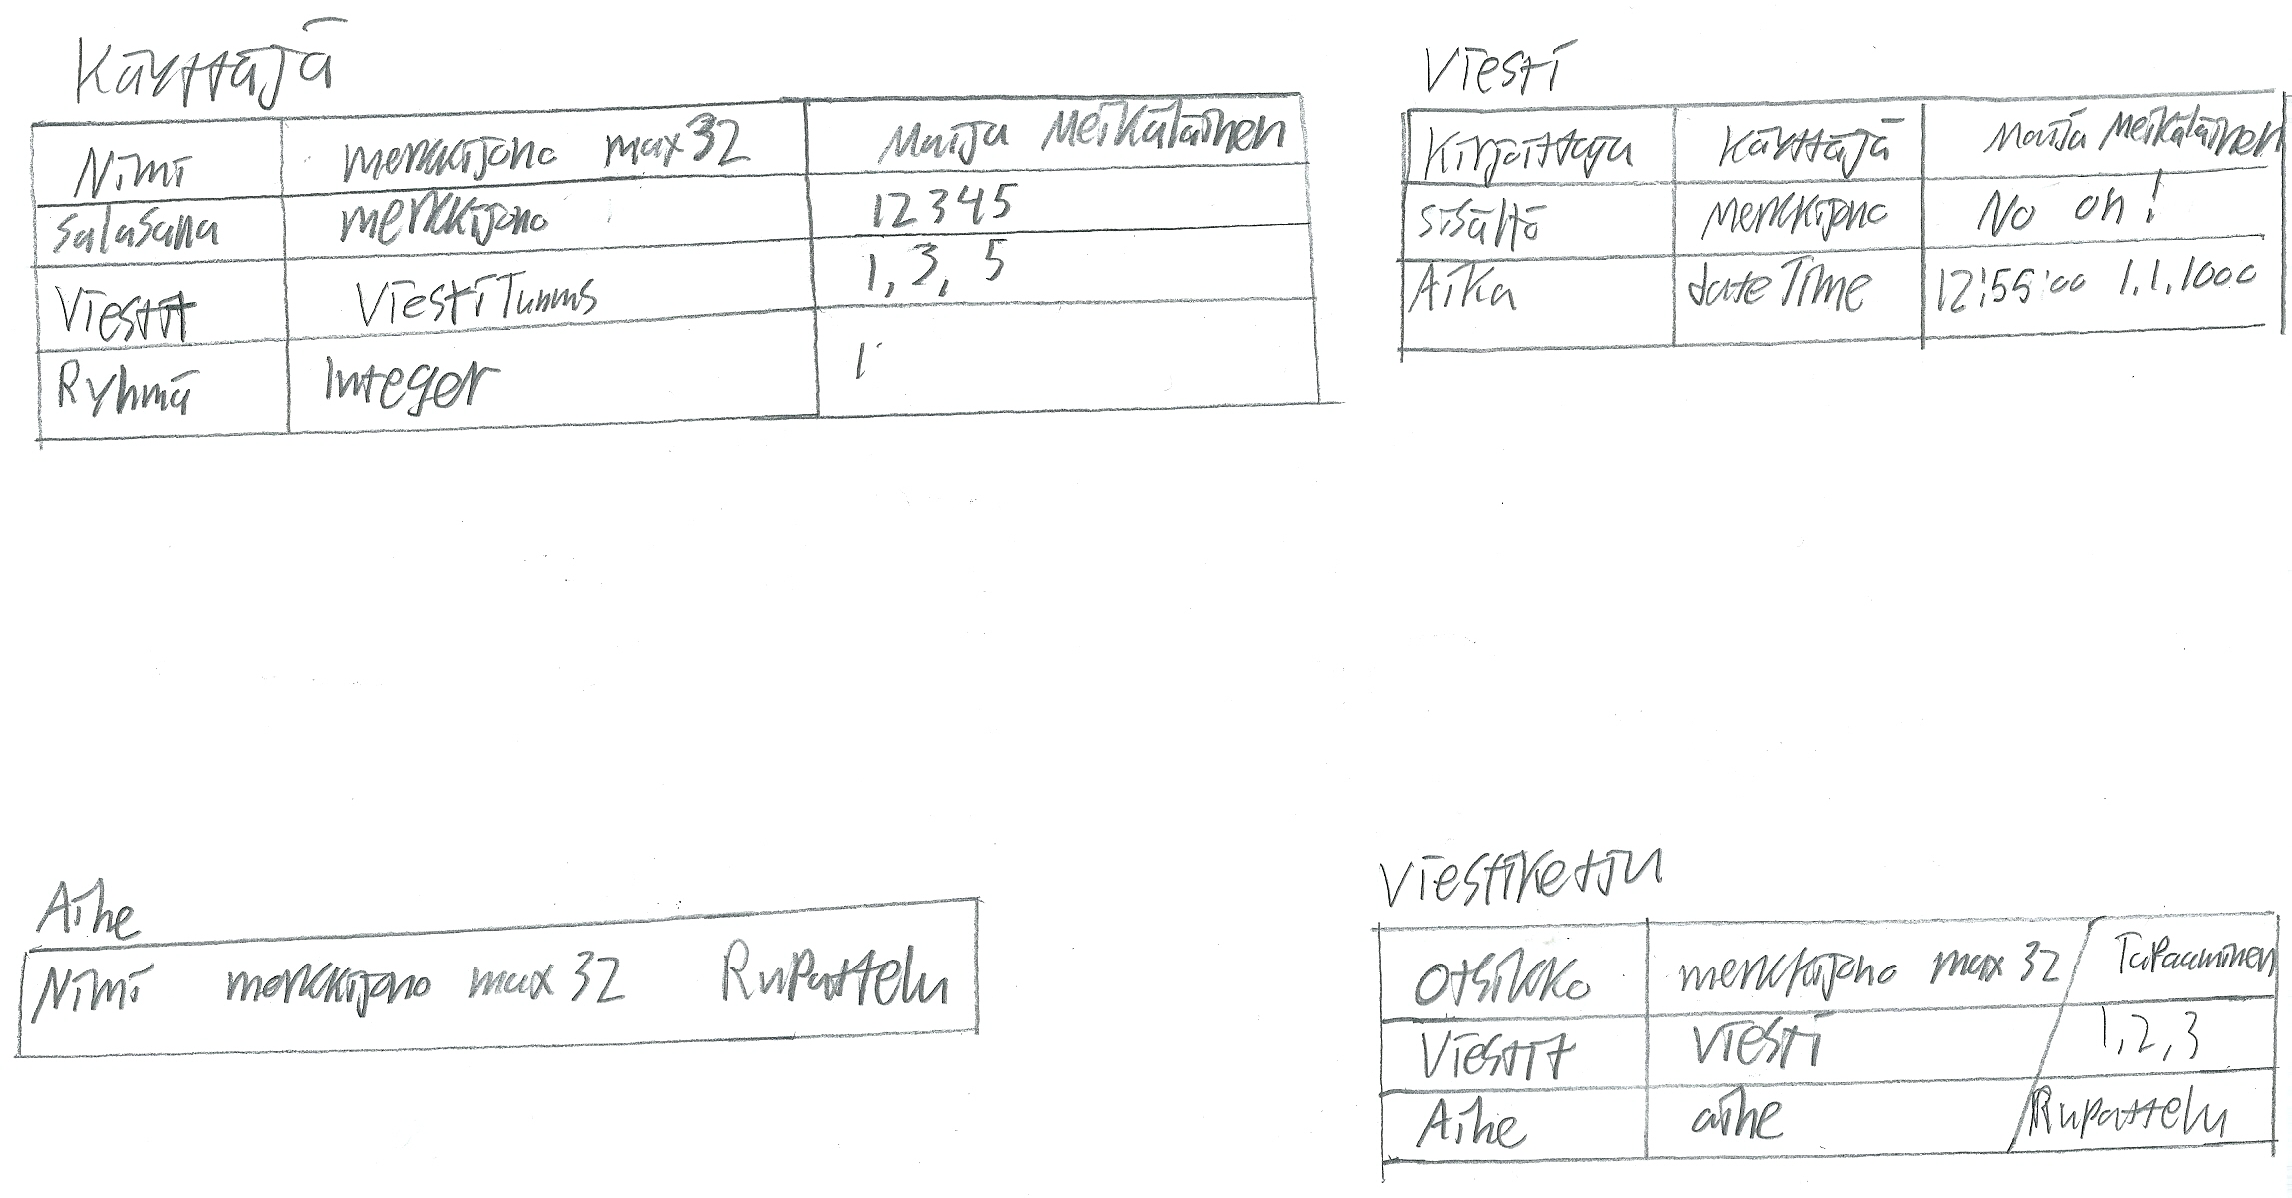 Käyttäjä
Nimi merkkijono max 32 Maija Meikäläinen
salasana merkkijono 12345
Viestit ViestiTunnus 1, 3, 5
Ryhmä Integer 1
Viesti
Kirjoittaja Käyttäjä Maija Meikäläinen
sisältö merkkijono No oh!
Aika dateTime 12:55:00 1.1.1000
Aihe
Nimi merkkijono max 32 Rupattelu
Viestiketju
Otsikko merkkijono max 32 Tapaaminen
Viestit viesti 1, 2, 3
Aihe aihe Rupattelu